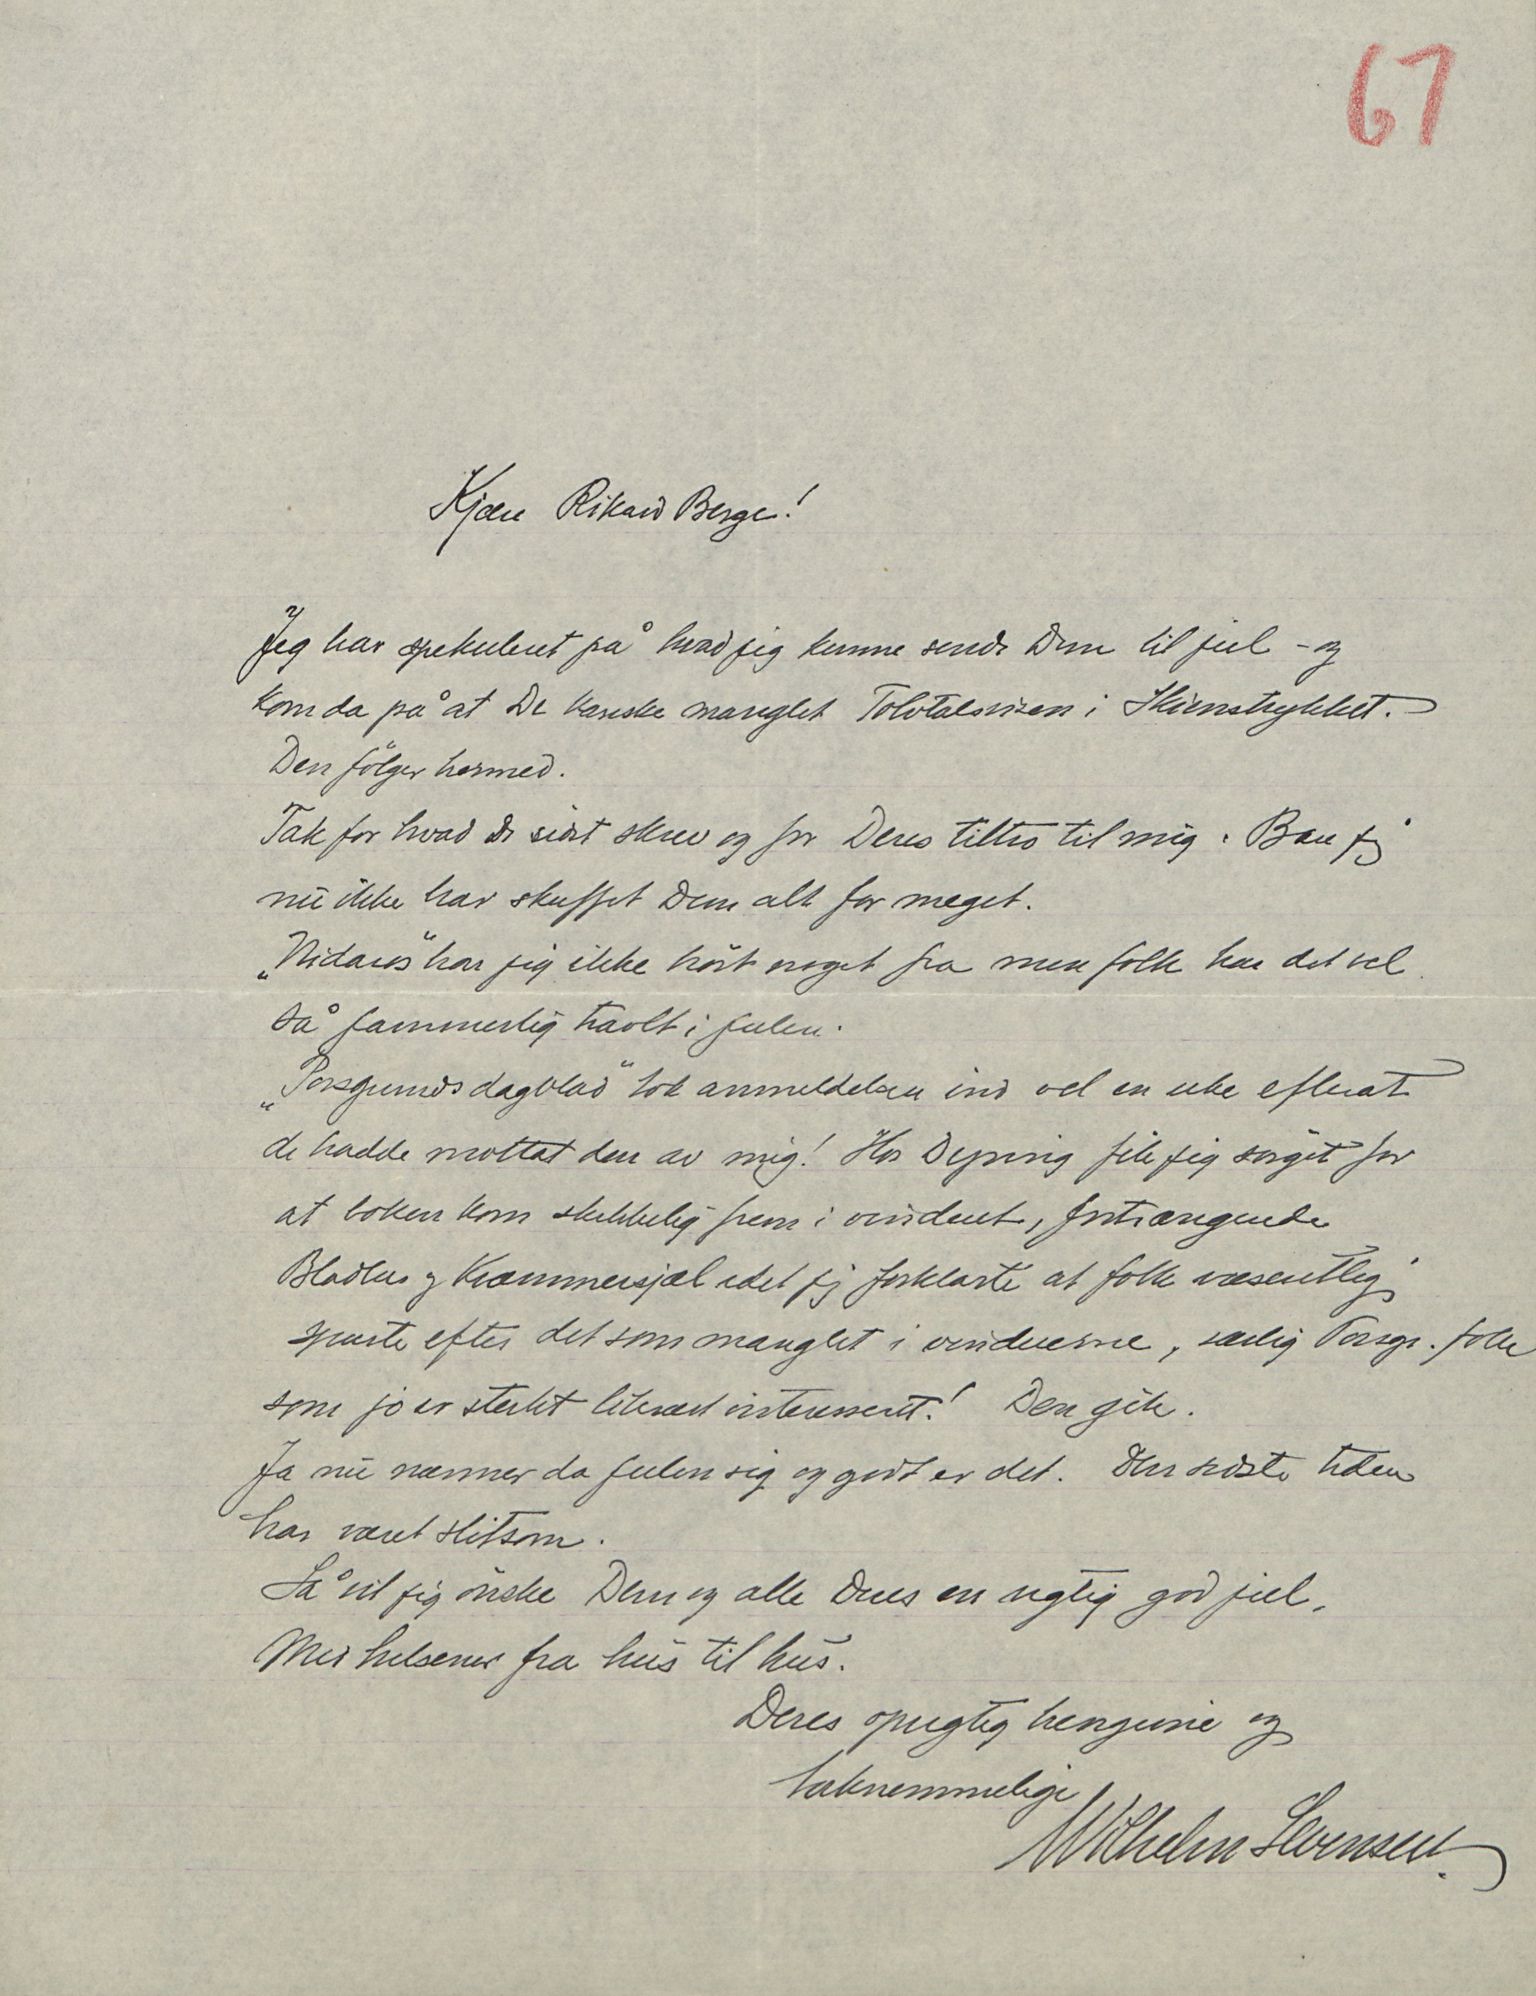 67
Kjære Rikard Berge!
Jeg har spekuleret på hvad jeg kunne sende Dem til jul - og
kom da på at De kanske manglet Tolvtalsvisen i Skienstrykket.
Den følger hermed.
Tak for hvad De sidst skrev og for Deres tiltro til mig. Bare jeg
nu ikke har skuffet Dem alt for meget.
„Nidaros" har jeg ikke hørt noget fra men folk har det vel
så jammerlig travlt i julen.
„Porsgrunds dagblad" tok anmeldelsen ind vel en uke efterat
de hadde mottat den av mig! Hos Dyring fik jeg sørget for
at boken kom skikkelig frem i vinduet, fortrængende
Bladlus og Kræmmersjæl idet jeg forklarte at folk væsentlig
spurte efter det som manglet i vinduerne, særlig Porsgr. folk
som jo er sterkt literært interesseret! Den gik.
Ja nu nærmer da julen sig og godt er det. Den sidste tiden
har været slitsom.
Så vil jeg ønske Dem og alle Deres en rigtig god jul.
Med hilsener fra hus til hus.
Deres oprigtig hengivne og
taknemmelige
Wilhelm Svensen.